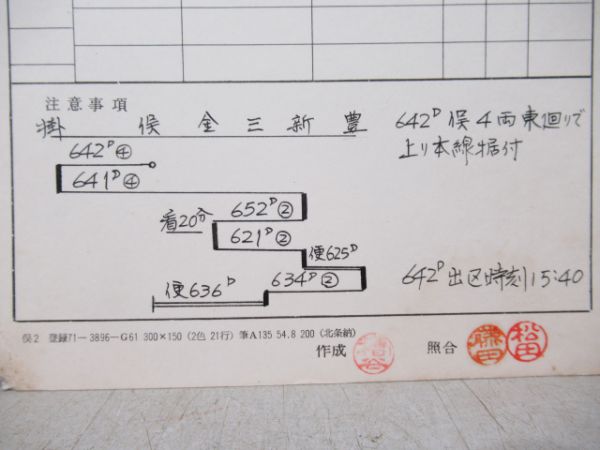 注意事項
掛 俣 金 三 新 豊
642D 俣4両東廻りで
上り本線据付
642D④
641D④
652D②
看20分
621D②
便625D
634D②
便636D
642D出区時刻15:40
俣2 登録71-3896-G61 300×150 (2色 21行) 筆A135 54.8 200 (北条納)
作成
照合
藤田
松田